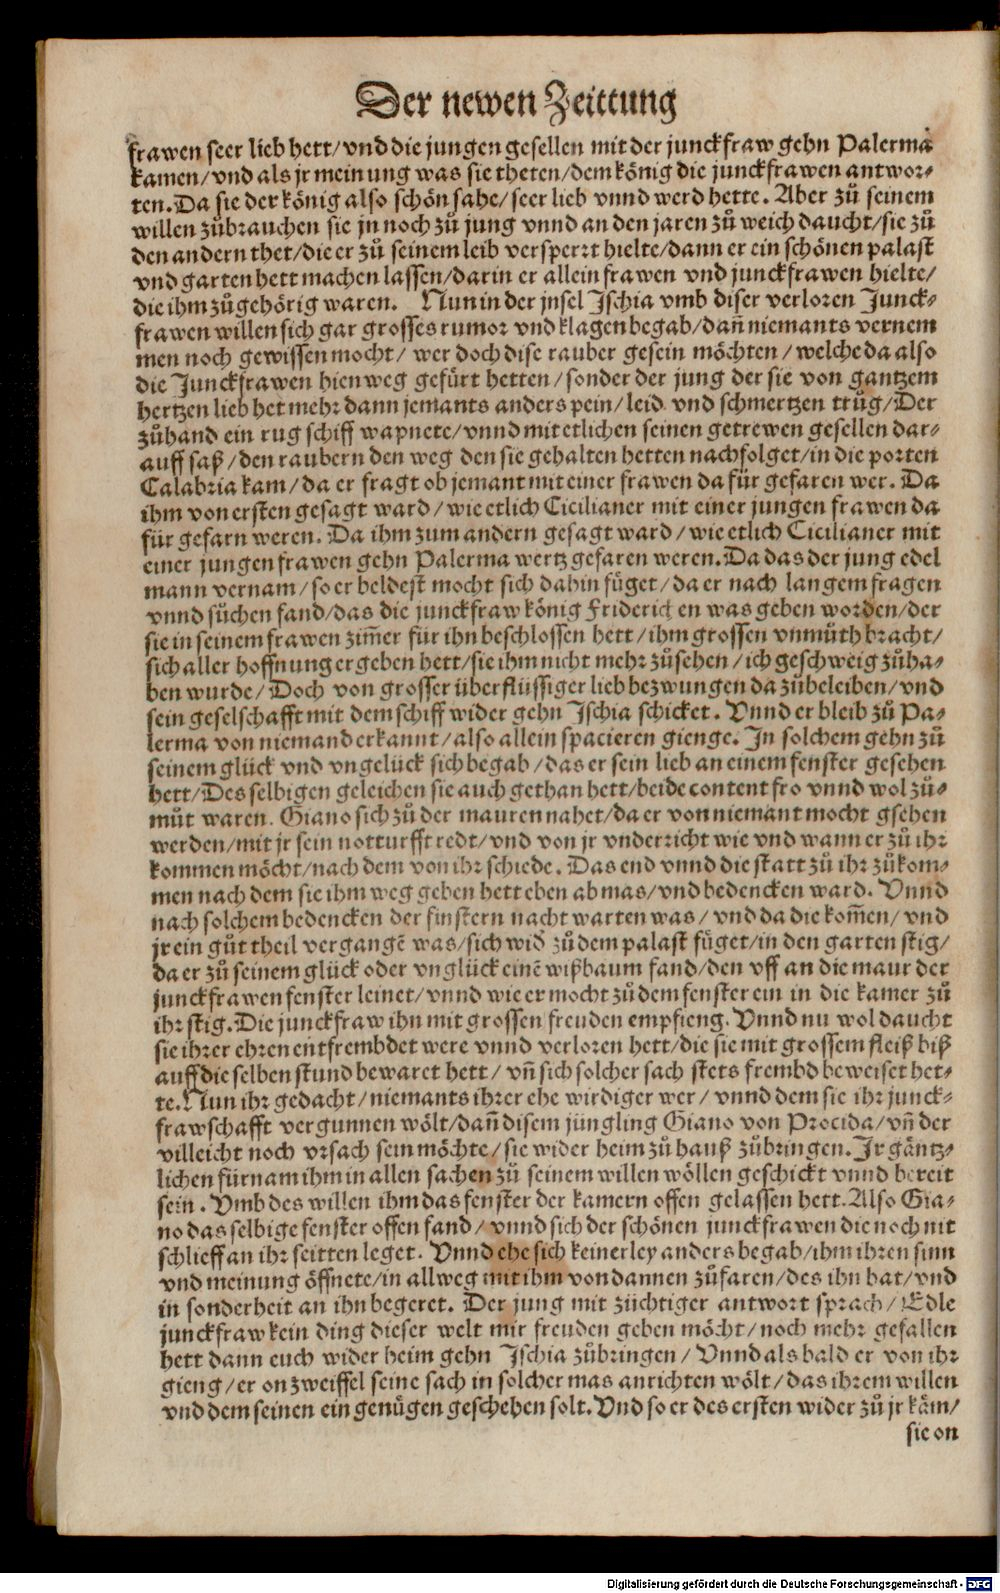 Der newen Zeittung
frawen seer lieb hett/vnd die jungen gesellen mit der junckfraw gehn Palerma
kamen/vnd als jr meinung was sie theten/dem könig die junckfrawen antwor⸗
ten. Da sie der könig also schön sahe/seer lieb vnnd werd hette. Aber zů seinem
willen zůbrauchen sie jn noch zů jung vnnd an den jaren zů weich daucht/sie zů
den andern thet/die er zů seinem leib versperrt hielte/dann er ein schönen palast
vnd garten hett machen lassen/darin er allein frawen vnd junckfrawen hielte/
die ihm zůgehörig waren. Nun in der jnsel Ischia vmb diser verloren Junck⸗
frawen willen sich gar grosses rumor vnd klagen begab/dañ niemants vernem
men noch gewissen mocht/ wer doch dise rauber gesein möchten/welche da also
die Junckfrawen hienweg gefürt hetten/sonder der jung der sie von gantzem
hertzen lieb het mehr dann jemants anders pein/leid vnd schmertzen trůg/Der
zůhand ein rug schiff wapnete/vnnd mit etlichen seinen getrewen gesellen dar⸗
auff saß/den raubern den weg den sie gehalten hetten nachfolget/in die porten
Calabria kam/da er fragt ob jemant mit einer frawen da für gefaren wer. Da
ihm von ersten gesagt ward/wie etlich Cicilianer mit einer jungen frawen da
für gefarn weren. Da ihm zum andern gesagt ward/wie etlich Cicilianer mit
einer jungen frawen gehn Palerma wertz gefaren weren. Da das der jung edel
mann vernam/so er beldest mocht sich dahin füget/da er nach langem fragen
vnnd sůchen fand/das die junckfraw könig Friderichen was geben worden/der
sie in seinem frawen zim̃er für ihn beschlossen hett/ihm grossen vnmůth bracht/
sich aller hoffnung ergeben hett/sie ihm nicht mehr zůsehen/ich geschweig zůha⸗
ben wurde/Doch von grosser überflüssiger lieb bezwungen da zůbeleiben/vnd
sein geselschafft mit dem schiff wider gehn Ischia schicket. Vnnd er bleib zů Pa⸗
lerma von niemand erkannt/also allein spacieren gienge. In solchem gehn zů
seinem glück vnd vngelück sich begab/das er sein lieb an einem fenster gesehen
hett/Des selbigen geleichen sie auch gethan hett/beide content fro vnnd wol zů⸗
můt waren. Giano sich zů der mauren nahet/da er von niemant mocht gsehen
werden/mit jr sein notturfft redt/vnd von jr vnderricht wie vnd wann er zů ihr
kommen möcht/nach dem von ihr schiede. Das end vnnd die statt zů ihr zůkom⸗
men nach dem sie ihm weg geben hett eben ab mas/vnd bedencken ward. Vnnd
nach solchem bedencken der finstern nacht warten was/ vnd da die kom̃en/vnd
jr ein gůt theil vergangẽ was/sich wid̃ zů dem palast füget/in den garten stig/
da er zů seinem glück oder vnglück einẽ wißbaum fand/den vff an die maur der
junckfrawen fenster leinet/vnnd wie er mocht zů dem fenster ein in die kamer zů
ihr stig. Die junckfraw ihn mit grossen freuden empfieng. Vnnd nu wol daucht
sie ihrer ehren entfrembdet were vnnd verloren hett/die sie mit grossem fleiß biß
auff die selben stund bewaret hett/ vñ sich solcher sach stets frembd beweiset het⸗
te. Nun ihr gedacht/niemants ihrer ehe wirdiger wer/ vnnd dem sie ihr junck⸗
frawschafft vergunnen wölt/dañ disem jüngling Giano von Procida/vñ der
villeicht noch vrsach sein möchte/sie wider heim zů hauß zůbringen. Ir gäntz⸗
lichen fürnam ihm in allen sachen zů seinem willen wöllen geschickt vnnd bereit
sein. Vmb des willen ihm das fenster der kamern offen gelassen hett. Also Gia⸗
no das selbige fenster offen fand/ vnnd sich der schönen junckfrawen die noch nit
schlieff an ihr seitten leget. Vnnd ehe sich keinerley anders begab/ihm ihren sinn
vnd meinung öffnete/in allweg mit ihm von dannen zůfaren/des ihn bat/vnd
in sonderheit an ihn begeret. Der jung mit züchtiger antwort sprach/Edle
junckfraw kein ding dieser welt mir freuden geben möcht/noch mehr gefallen
hett dann euch wider heim gehn Ischia zůbringen/Vnnd als bald er von ihr
gieng/er on zweiffel seine sach in solcher mas anrichten wölt/das ihrem willen
vnd dem seinen ein genügen geschehen solt. Vnd so er des ersten wider zů jr käm/
sie on
Digitalisierung gefördert durch die Deutsche Forschungsgemeinschaft - DFG